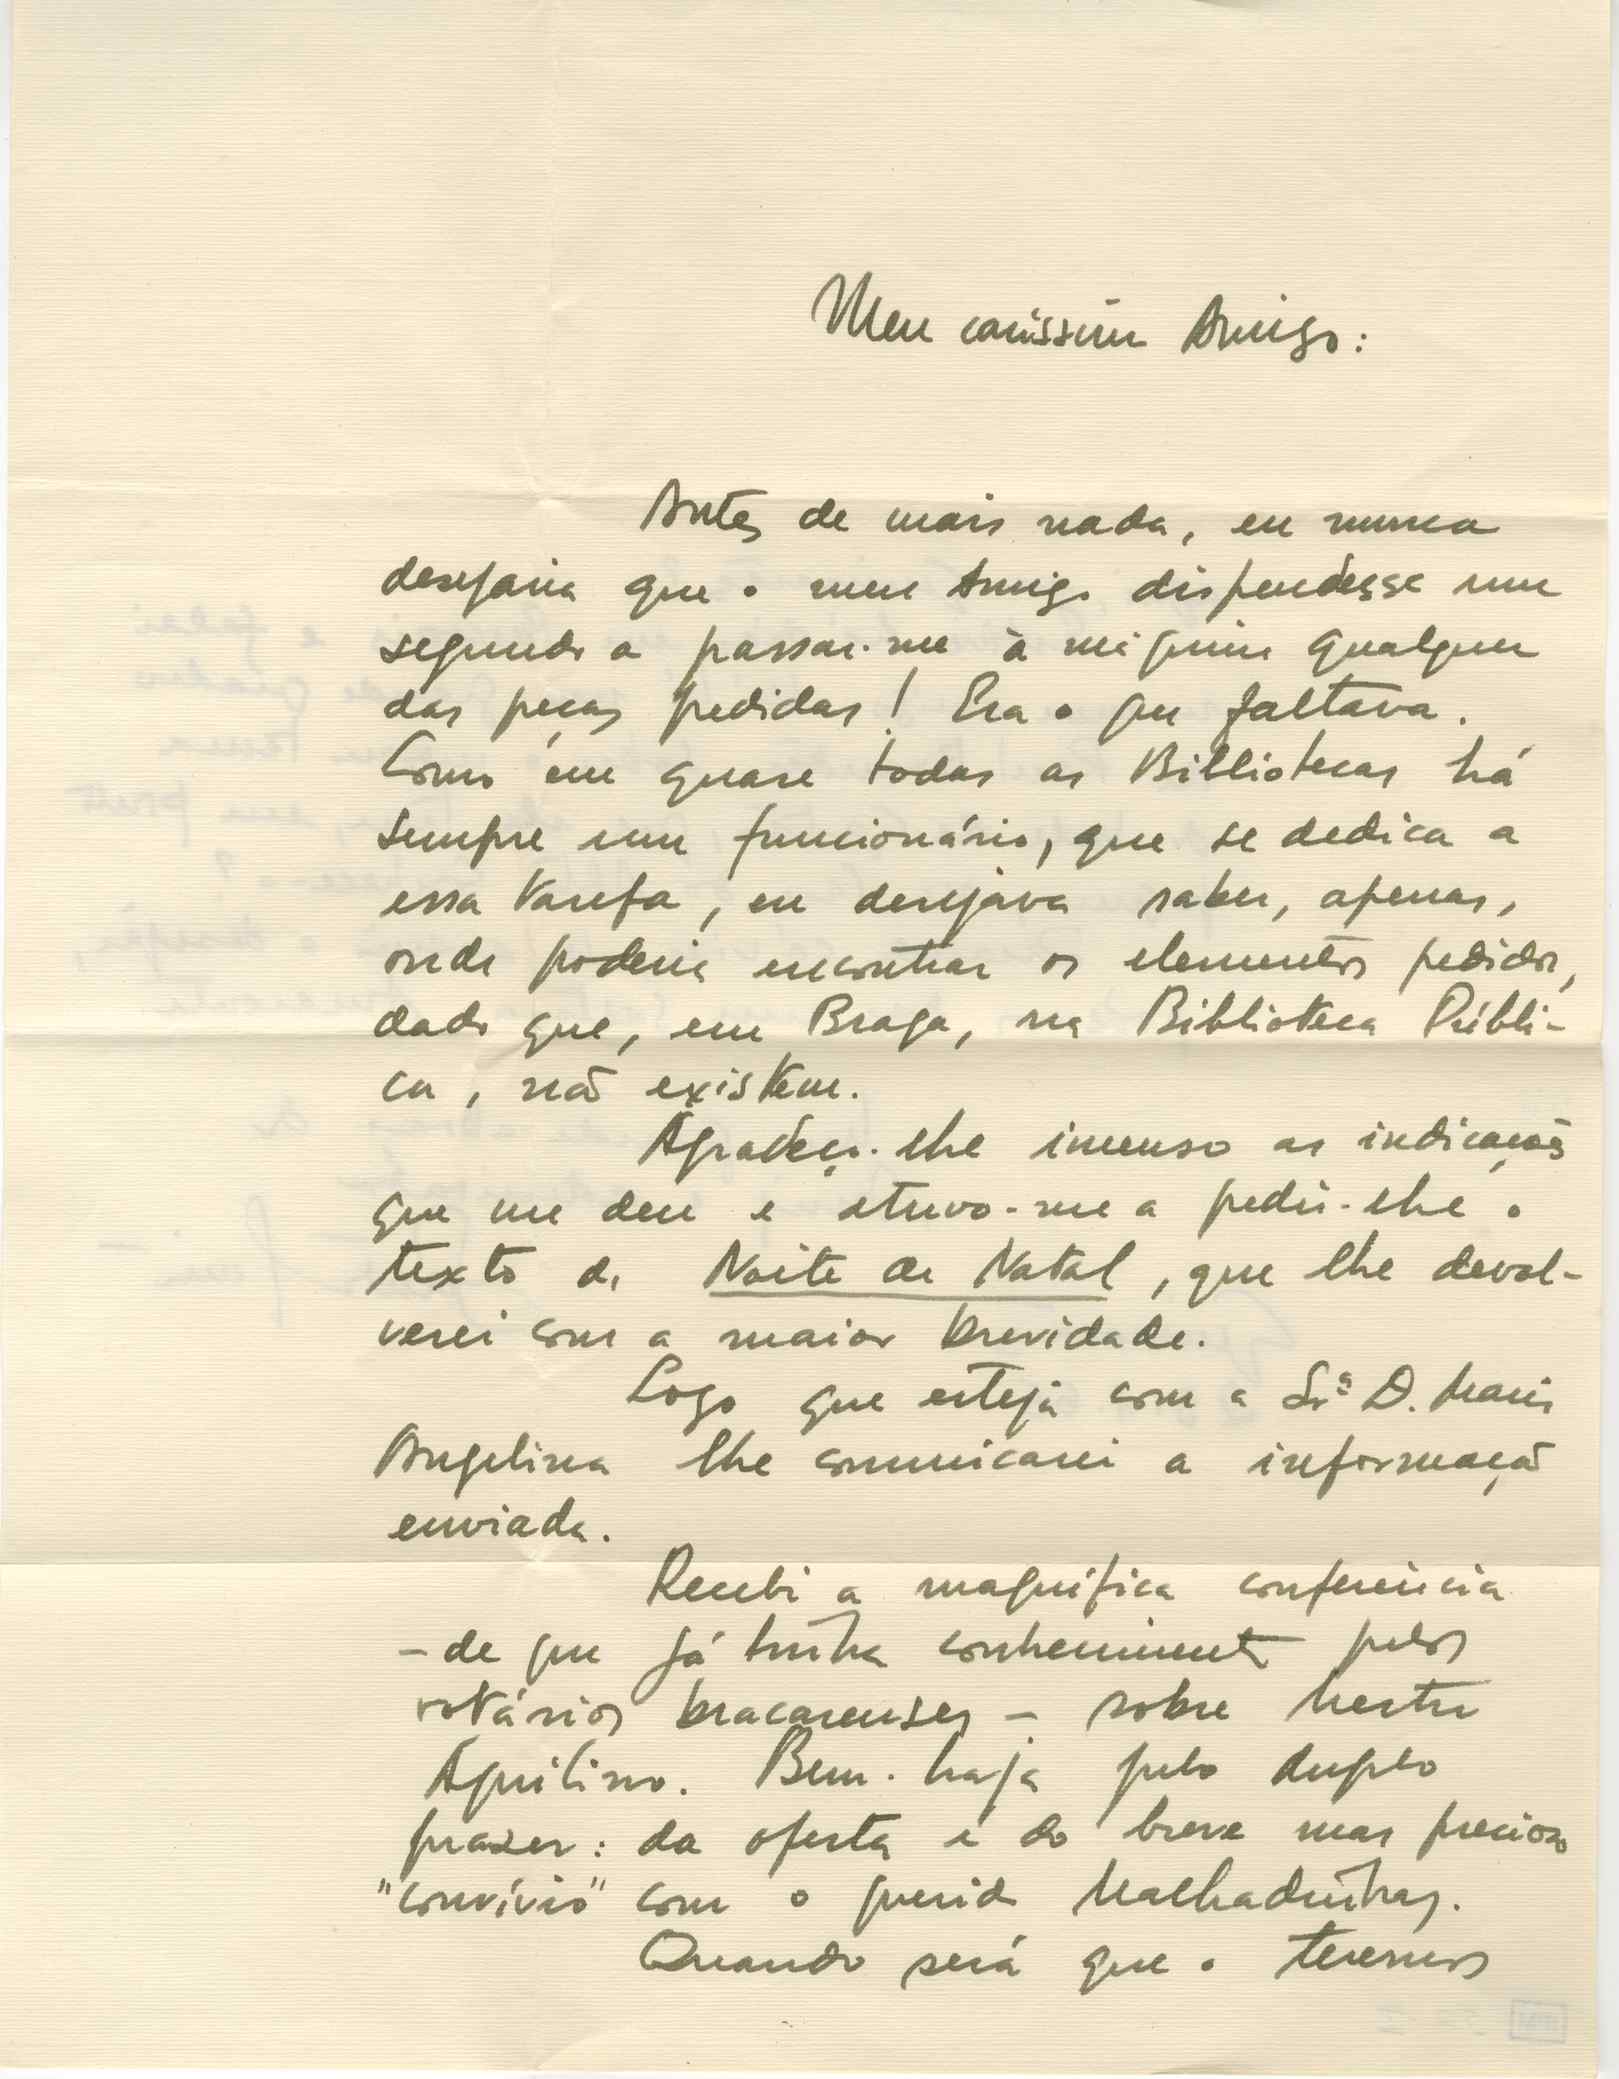 Meu caríssimo Amigo:
Antes de mais nada, eu nunca
desejaria que o meu Amigo dispendesse um
segundo a passar-me à máquina qualquer
das peças pedidas! Era o que faltava.
Como em quase todas as Bibliotecas há
sempre um funcionário, que se dedica a
essa tarefa, eu desejava saber, apenas,
onde poderia encontrar os elementos pedidos,
dado que, em Braga, na Biblioteca Públi-
ca, não existem.
Agradeço-lhe imenso as indicações
que me deu e atrevo-me a pedir-lhe o
texto da Noite de Natal, que lhe devol-
verei com a maior brevidade.
Logo que esteja com a Srª D. Maria
Angelina lhe comunicarei a informação
enviada.
Recebi a magnífica conferência
- de que já tinha conhecimento pelos
rotários bracarenses - sobre Mestre
Aquilino. Bem-haja pelo duplo
prazer: da oferta e do breve mas precioso
"convívio" com o querido Malhadinhas.
Quando será que o teremos